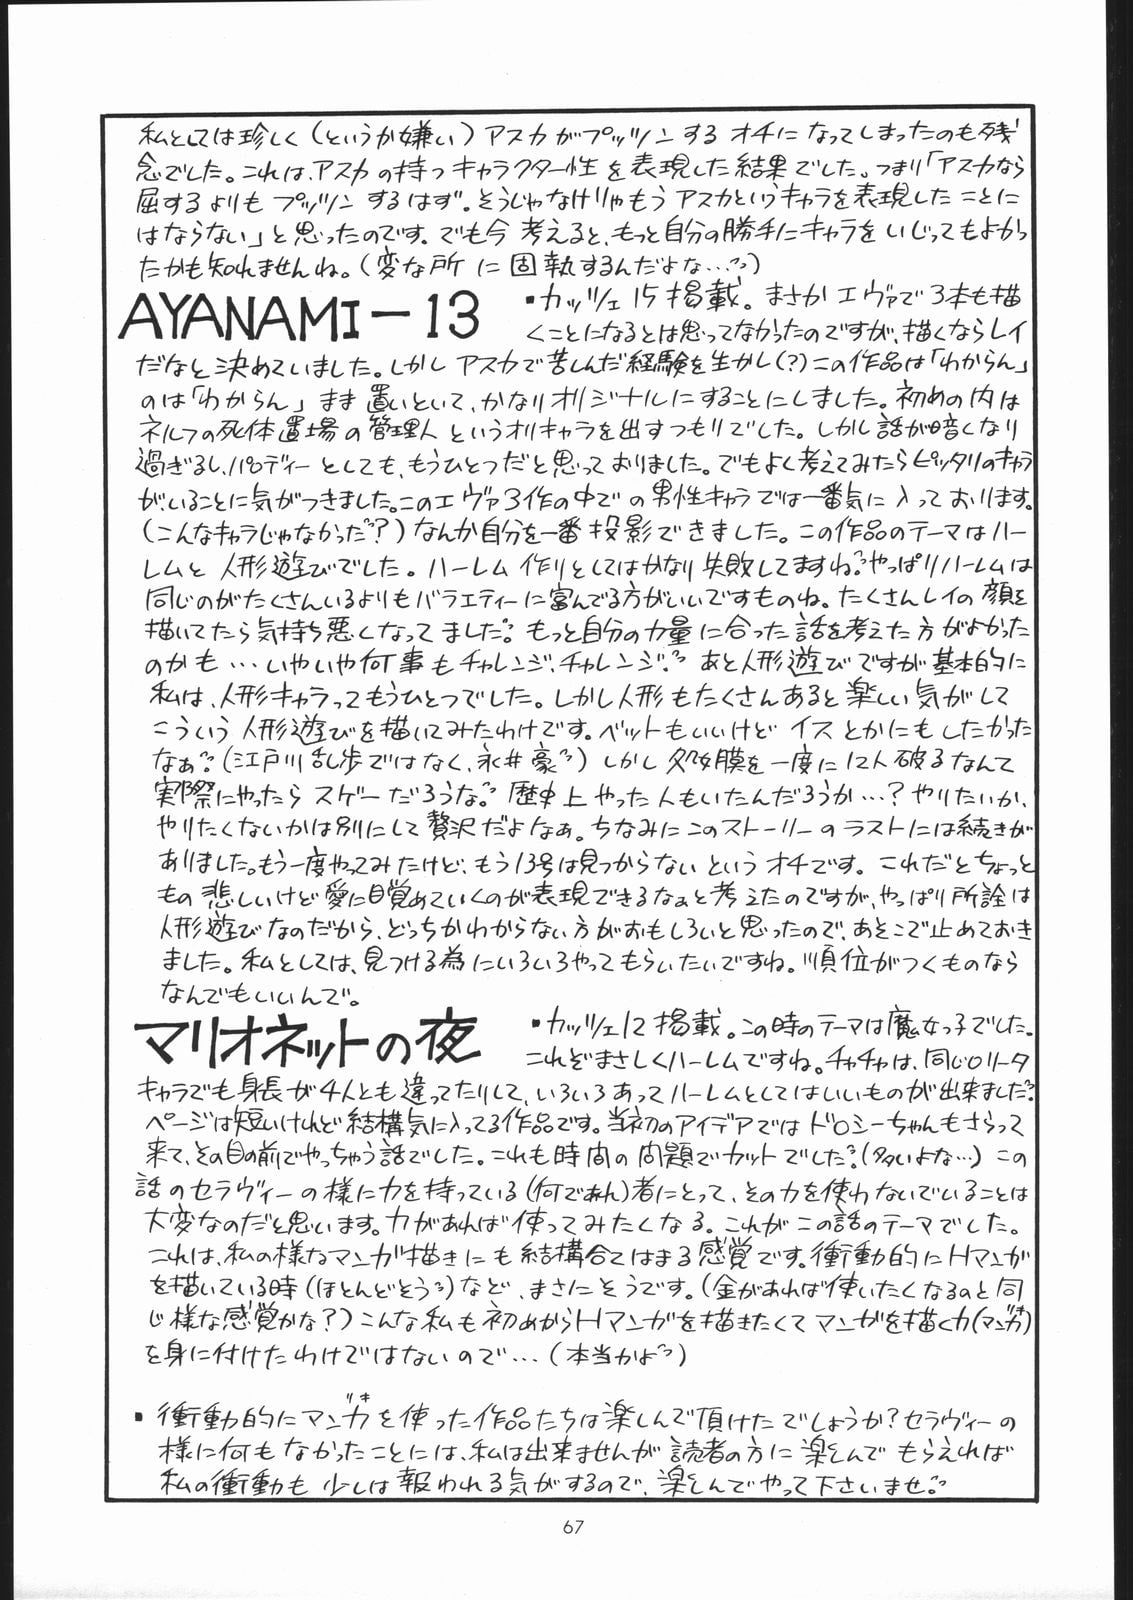 私としては珍しく（というか嫌い）アスカがプッツンするオチになってしまったのも残
念でした。これは、アスカの持つキャラクター性を表現した結果でした。つまり「アスカなら
屈するよりもプッツンするはず。そうじゃなけりゃもうアスカというキャラを表現したことに
はならない」と思ったのです。でも今考えると、もっと自分の勝手にキャラをいじってもよかっ
たかも知れませんね。（変な所に固執するんだよな…）
AYANAMI－13
・カッツェ15掲載。まさかエヴァで3本も描
くことになるとは思ってなかったのですが、描くならレイ
だなと決めていました。しかしアスカで苦しんだ経験を生かし（?）この作品は「わからん」
のは「わからん」まま置いといて、かなりオリジナルにすることにしました。初めの内は
ネルフの死体置場の管理人というオリキャラを出すつもりでした。しかし話が暗くなり
過ぎるし、パロディーとしても、もうひとつだと思っておりました。でもよく考えてみたらピッタリのキャラ
がいることに気がつきました。このエヴァ3作の中での男性キャラでは一番気に入っております。
（こんなキャラじゃなかだ?）なんか自分を一番投影できました。この作品のテーマはハー
レムと人形遊びでした。ハーレム作りとしてはかなり失敗してますね。やっぱりハーレムは
同じのがたくさんいるよりもバラエティーに富んでる方がいいですものね。たくさんレイの顔を
描いてたら気持ち悪くなってました。もっと自分の力量に合った話を考えた方がよかった
のかも…いやいや何事もチャレンジ、チャレンジ。あと人形遊びですが基本的に
私は、人形キャラってもうひとつでした。しかし人形もたくさんあると楽しい気がして
こういう人形遊びを描いてみたわけです。ベットもいいけどイスとかにもしたかった
なぁ。（江戸川乱歩ではなく、永井豪）しかし処女膜を一度に12人破るなんて
実際にやったらスゲーだろうな。歴史上やった人もいたんだろうか…？やりたいか、
やりたくないかは別にして贅沢だよなぁ。ちなみにこのストーリーのラストには続きが
ありました。もう一度やってみたけど、もう13号は見つからないというオチです。これだとちょっと
もの悲しいけど愛に目覚めていくのが表現できるなぁと考えたのですが、やっぱり所詮は
人形遊びなのだから、どっちかわからない方がおもしろいと思ったので、あそこで止めておき
ました。私としては、見つける為にいろいろやってもらいたいですね。順位がつくものなら
なんでもいいんで。
マリオネットの夜
・カッツェ12掲載。この時のテーマは魔女っ子でした。
これぞまさしくハーレムですね。チャチャは、同じロリータ
キャラでも身長が4人とも違ってたりして、いろいろあってハーレムとしてはいいものが出来ました。
ページは短いけれど結構気に入ってる作品です。当初のアイデアではドロシーちゃんもさらって
来て、その目の前でやっちゃう話でした。これも時間の問題でカットでした。（多いよな…）この
話のセラヴィーの様に力を持っている（何であれ）者にとって、その力を使わないでいることは
大変なのだと思います。力があれば使ってみたくなる。これがこの話のテーマでした。
これは、私の様なマンガ描きにも結構合てはまる感覚です。衝動的にHマンガ
を描いている時（ほとんどそう）など、まさにそうです。（金があれば使いたくなるのと同
じ様な感覚かな？）こんな私も初めからHマンガを描きたくてマンガを描く力（マンガ）
を身に付けたわけではないので…（本当かよ）
・衝動的にマンガを使った作品たちは楽しんで頂けたでしょうか？セラヴィーの
様に何もなかったことには、私は出来ませんが読者の方に楽しんでもらえれば
私の衝動も少しは報われる気がするので、楽しんでやって下さいませ。
67